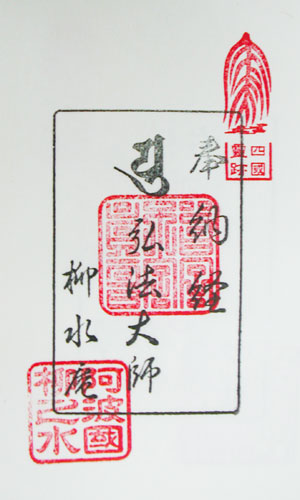 四國
靈跡
奉納經
弘法大師
柳水庵
阿波國
柳之水